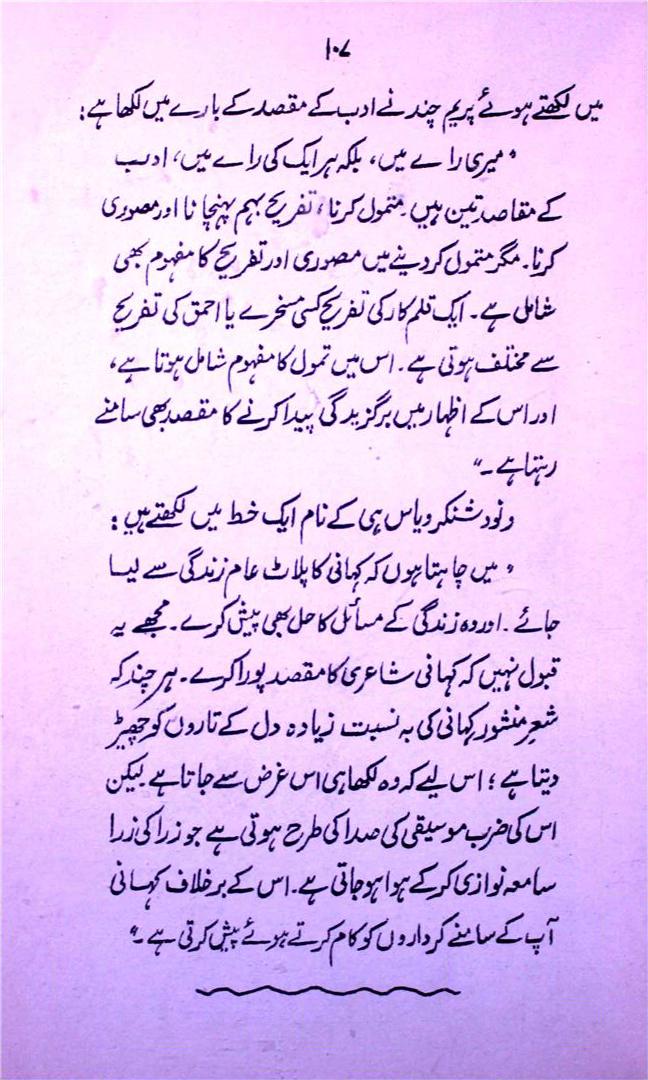 ۱۰۷
میں لکھتے ہوئے پریم چند نے ادب کے مقصد کے بارے میں لکھا ہے:
"میری راے میں، بلکہ ہر ایک کی راے میں، ادب
کے مقاصد تین ہیں۔ متمول کرنا، تفریح بہم پہنچانا اور مصوری
کرنا۔ مگر متمول کر دینے میں مصوری اور تفریح کا مفہوم بھی
شامل ہے۔ ایک قلم کار کی تفریح کسی مسخرے یا احمق کی تفریح
سے مختلف ہوتی ہے۔ اس میں تمول کا مفہوم شامل ہوتا ہے،
اور اس کے اظہار میں برگزیدگی پیدا کرنے کا مقصد بھی سامنے
رہتا ہے۔"
ونود شنکر ویاس ہی کے نام ایک خط میں لکھتے ہیں:
"میں چاہتا ہوں کہ کہانی کا پلاٹ عام زندگی سے لیا
جائے۔ اور وہ زندگی کے مسائل کا حل بھی پیش کرے۔ مجھے یہ
قبول نہیں کہ کہانی شاعری کا مقصد پورا کرے۔ ہر چند کہ
شعرِ منثور کہانی کی بہ نسبت زیادہ دل کے تاروں کو چھیڑ
دیتا ہے؛ اس لیے کہ وہ لکھا ہی اس غرض سے جاتا ہے لیکن
اس کی ضرب موسیقی کی صدا کی طرح ہوتی ہے جو ذرا کی ذرا
سامعہ نوازی کر کے ہوا ہو جاتی ہے۔ اس کے برخلاف کہانی
آپ کے سامنے کرداروں کو کام کرتے ہوئے پیش کرتی ہے۔"